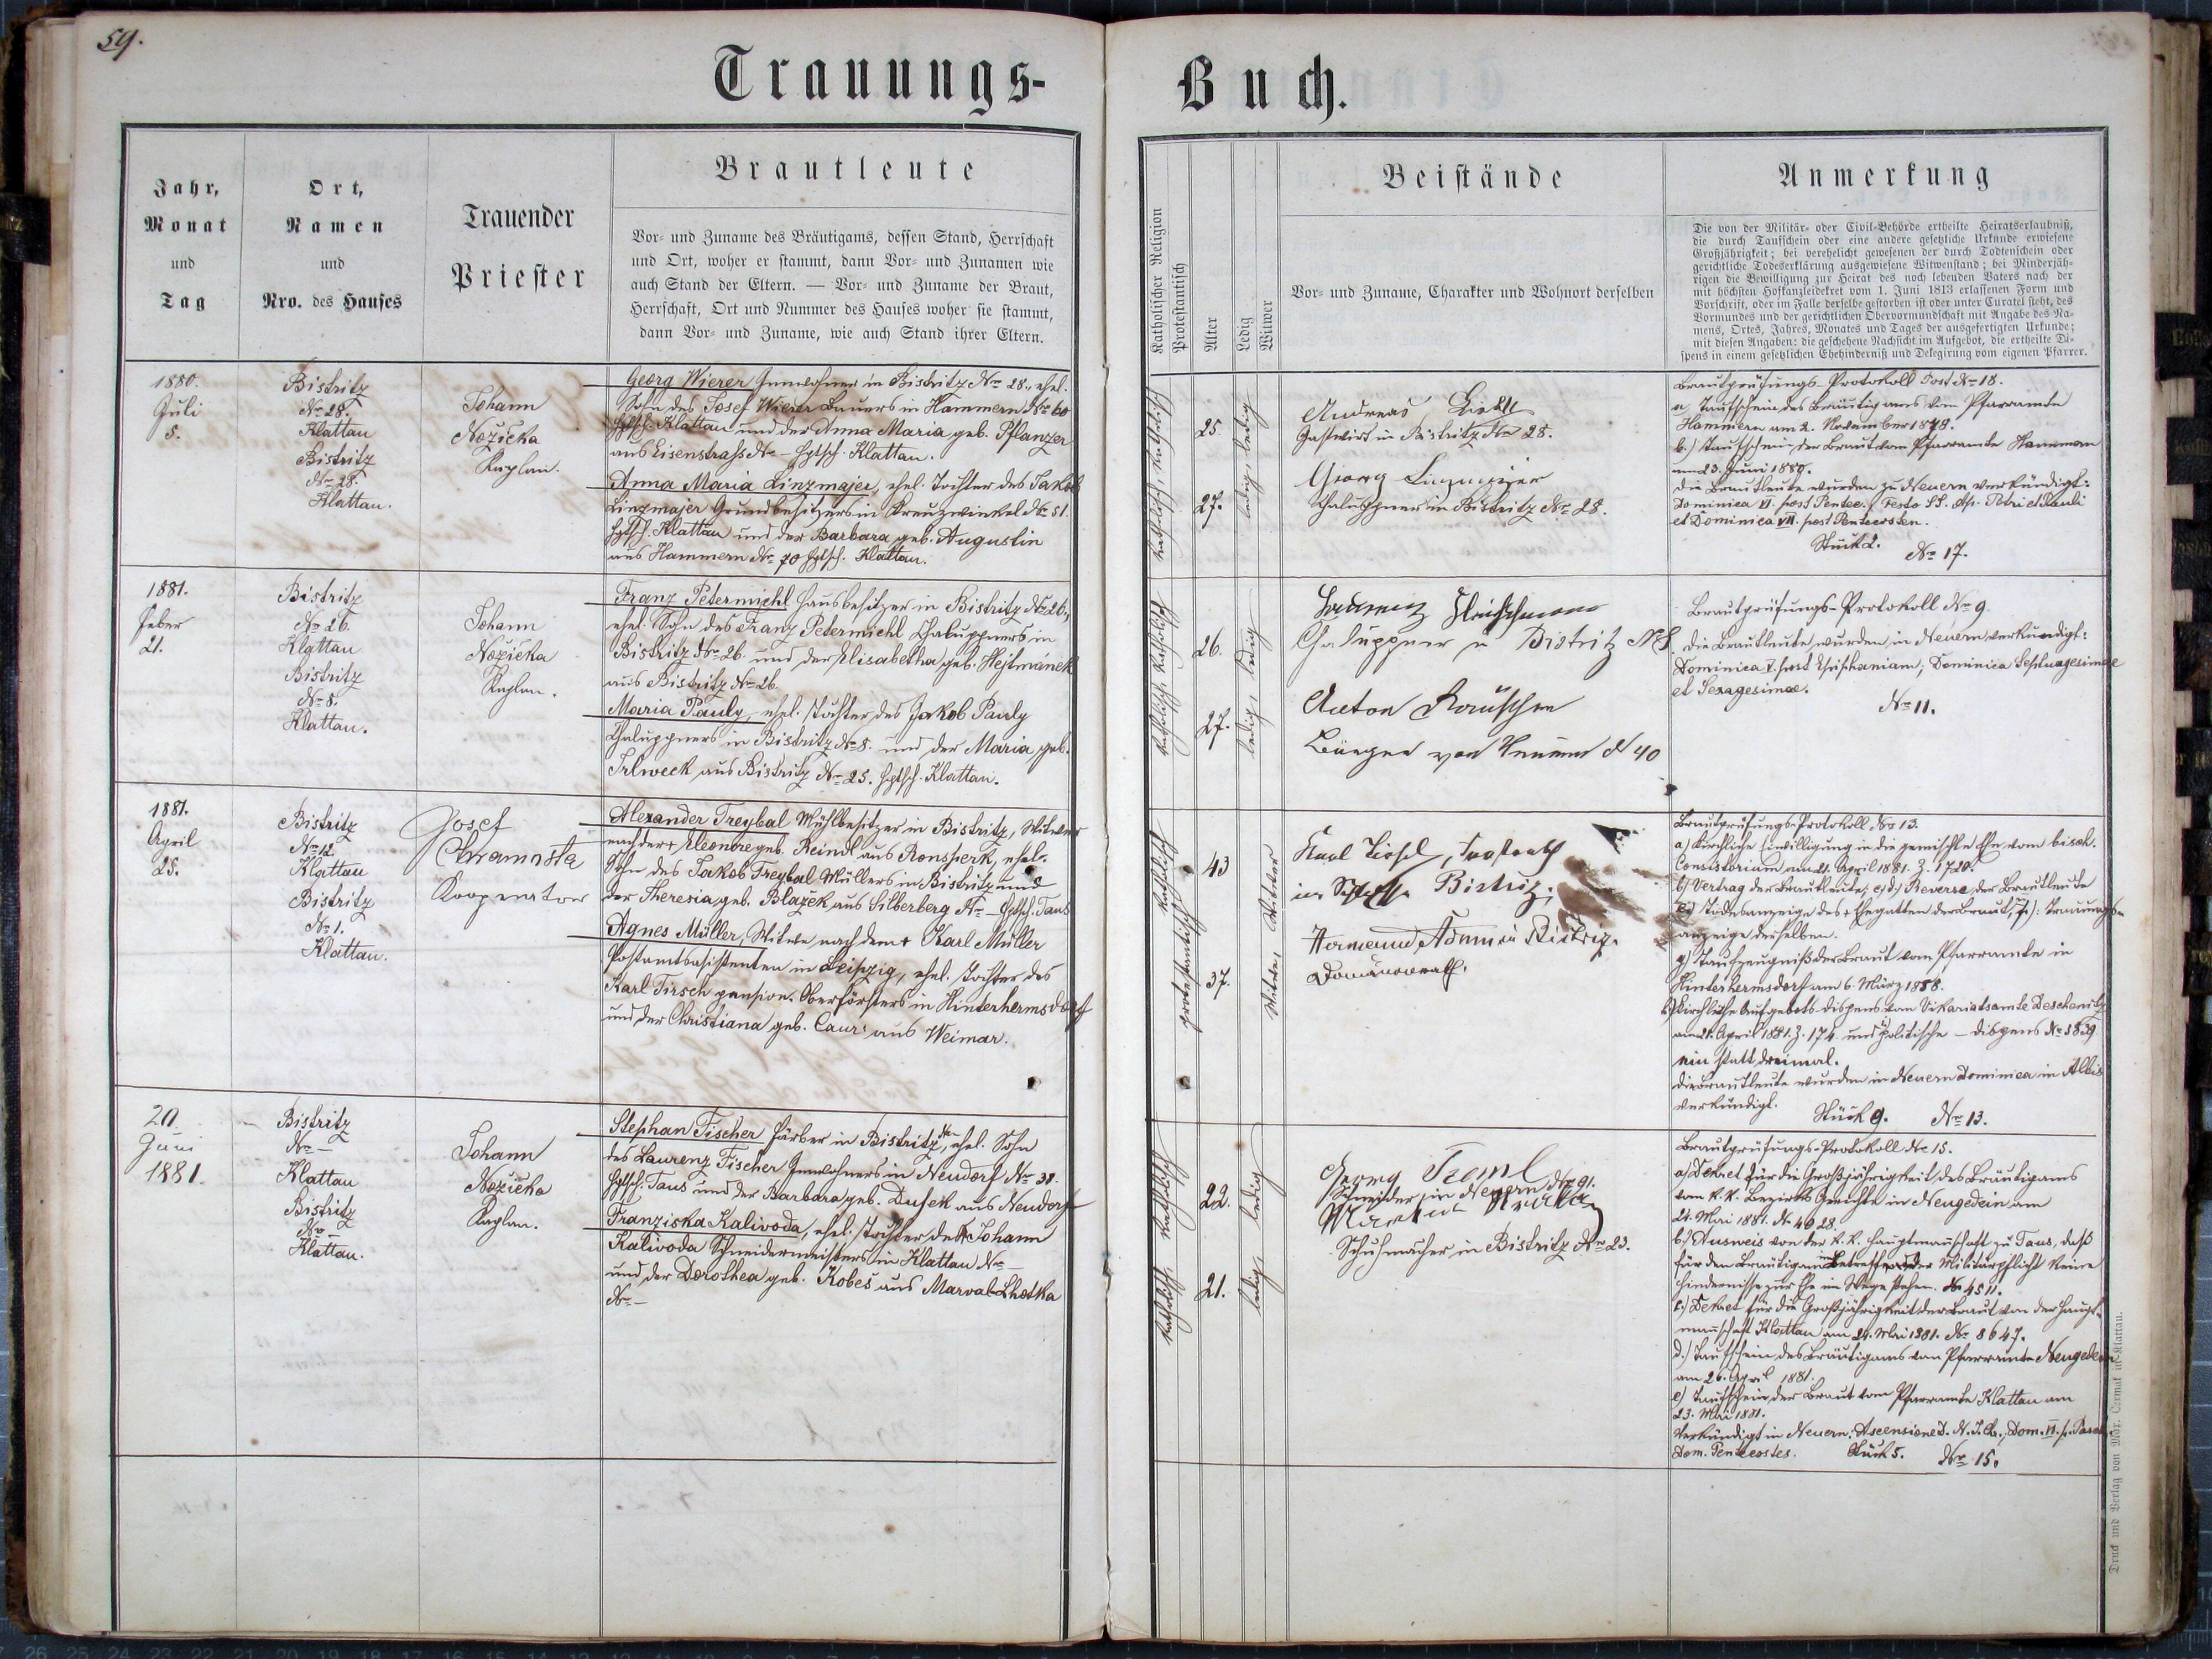 59.
Trauungs-
Buch.
Jahr,
Monat
und
Tag
Ort,
Namen
und
Nro. des Hauses
Trauender
Priester
Brautleute
Vor- und Zuname des Bräutigams, dessen Stand, Herrschaft
und Ort, woher er stammt, dann Vor- und Zunamen wie
auch Stand der Eltern. — Vor- und Zuname der Braut,
Herrschaft, Ort und Nummer des Hauses woher sie stammt,
dann Vor- und Zuname, wie auch Stand ihrer Eltern.
Katholischer Religion
Protestantisch
Alter
Ledig
Witwer
Beistände
Vor- und Zuname, Charakter und Wohnort derselben
Anmerkung
Die von der Militär- oder Civil-Behörde ertheilte Heiratserlaubniß,
die durch Taufschein oder eine andere gesetzliche Urkunde erwiesene
Großjährigkeit; bei verehelicht gewesenen der durch Todtenschein oder
gerichtliche Todeserklärung ausgewiesene Witwenstand; bei Minderjäh-
rigen die Bewilligung zur Heirat des noch lebenden Vaters nach der
mit höchsten Hofkanzleidekret vom 1. Juni 1813 erlassenen Form und
Vorschrift, oder im Falle derselbe gestorben ist oder unter Curatel steht, des
Vormundes und der gerichtlichen Obervormundschaft mit Angabe des Na-
mens, Ortes, Jahres, Monates und Tages der ausgefertigten Urkunde;
mit diesen Angaben: die geschehene Nachsicht im Aufgebot, die ertheilte Di-
spens in einem gesetzlichen Ehehinderniß und Delegirung vom eigenen Pfarrer.
1880.
Juli
5.
Bistritz
No 28.
Klattau
Bistritz
No 28.
Klattau.
Johann
Nožička
Kaplan.
Georg Wierer Inwohner in Bistritz No 28., ehel.
Sohn des Josef Wierer Bauers in Hammern No 60
Hptsch. Klattau und der Anna Maria geb. Pflanzer
aus Eisenstrass No – Hptsch. Klattau.
Anna Maria Linzmajer, ehel. Tochter des Jakob
Linzmajer Grundbesitzers in Kreuzwinkel No 51
Hptsch. Klattau und der Barbara geb. Augustin
aus Hammern No 70 Hptsch. Klattau.
katholisch, katholisch
25.
27.
ledig, ledig
Andreas
Gastwirt in Bistritz No 28.
Georg Linzmajer
Chaluppner in Bistritz No 28.
Brautprüfungs-Protokoll Post No 18.
a) Taufschein des Bräutigams vom Pfarramte
Hammern am 2. November 1878.
b.) Taufschein der Braut vom Pfarramte Hammern
am 23. Juni 1880.
die Brautleute wurden zu Neuern verkündigt:
Dominica VI. post Pentec. Festo SS. Ap. Petri et Pauli
et Dominica VII. post Pentecosten.
Stück 2. No 17.
1881.
Feber
21.
Bistritz
No 26.
Klattau
Bistritz
No 8.
Klattau.
Johann
Nožička
Kaplan.
Franz Petermichl Hausbesitzer in Bistritz No 26,
ehel. Sohn des Franz Petermichl Chaluppners in
Bistritz No 26. und der Elisabetha geb. Hejtmánek
aus Bistritz No 26.
Maria Pauly, ehel. Tochter des Jakob Pauly
Chaluppners in Bistritz No 8. und der Maria geb.
Irlweck aus Bistritz No 25. Hptsch. Klattau.
katholisch, katholisch
26.
27.
ledig, ledig
Chaluppner in Bistritz N 8.
Anton
Bürger von Neuern N 40
Brautprüfungs-Protokoll No 9.
Die Brautleute wurden in Neuern verkündigt:
Dominica V. post Epiphaniam; Dominica Septuagesimae
et Sexagesimae.
No 11.
1881.
April
25.
Bistritz
No 12.
Klattau
Bistritz
No 1.
Klattau.
Josef
Chramosta
Kooperator
Alexander Treybal Mühlbesitzer in Bistritz, Witwer
nach der † Eleonore geb. Reindl aus Ronsperk, ehel.
Sohn des Jakob Treybal Müllers in Bistritz und
der Theresia geb. Blažek aus Silberberg No – Hptsch. Taus
Agnes Müller, Witwe nach dem † Karl Müller
Postamtsassistenten in Leipzig, ehel. Tochter des
Karl Tirsch pension. Oberförsters in Hinterhermsdorf
und der Christiana geb. Caur aus Weimar.
protestantisch katholisch
43
37.
Witwe, Witwer
Karl
Bistriz.
Hermann Adam in Bistriz.
Domänenrath.
Brautprüfungs-Protokoll No 13.
a) Kirchliche Einwilligung in die gemischte Ehe vom bisch.
Consistorium am 21. April 1881. Z. 1720.
b) Vertrag der Brautleute; c) d) Reverse der Brautleute
e) Todesanzeige des † Ehegatten der Braut, f): Trauungs-
anzeige derselben.
g) Taufzeugniß der Braut vom Pfarramte in
Hinterhermsdorf am 6. März 1858.
h) Kirchliche Aufgebots-dispens vom Vikariatsamte Deschenitz
am 21. April 1881. Z. 174. und politische – dispens No 3839
ein statt dreimal.
die Brautleute wurden in Neuern Dominica in Albis
verkündigt. Stück 9. No 13.
20.
Juni
1881.
Bistritz
No –
Klattau
Bistritz
No –
Klattau.
Johann
Nožička
Kaplan.
Stephan Fischer Färber in Bistritz No –, ehel. Sohn
des Laurenz Fischer Inwohners in Neudorf No 38.
Hptsch. Taus und der Barbara geb. Dušek aus Neudorf
Franziska Kalivoda, ehel. Tochter des † Johann
Kalivoda Schneidermeisters in Klattau No –
und der Dorothea geb. Kobeš aus Marval-Lhotka
No –
katholisch, katholisch
22.
21.
ledig, ledig
Georg Treml
Schneider in Neuern No 91.
Schuhmacher in Bistritz No 23.
Brautprüfungs-Protokoll No 15.
a) Dekret für die Großjährigkeit des Bräutigams
vom k. k. Bezirks Gerichte in Neugedein am
24. Mai 1881. No 4028.
b) Ausweis von der k. k. Hauptmannschaft zu Taus, daß
für den Bräutigam in Betreff der Militärpflicht keine
Hindernisse zur Ehe im Wege stehen. No 4511.
c.) Dekret für die Großjährigkeit der Braut von der Haupt-
mannschaft Klattau am 24. Mai 1881. No 8647.
d.) Taufschein des Bräutigams vom Pfarramte Neugedein
am 26. April 1881.
e) Taufschein der Braut vom Pfarramte Klattau am
23. Mai 1881.
Verkündigt in Neuern: Ascensione D. N. J. Ch., Dom. VI. p. Pasch.
Dom. Pentecostes. Stück 5. No 15.
Druck und Verlag von Max. Čermak in Klattau.